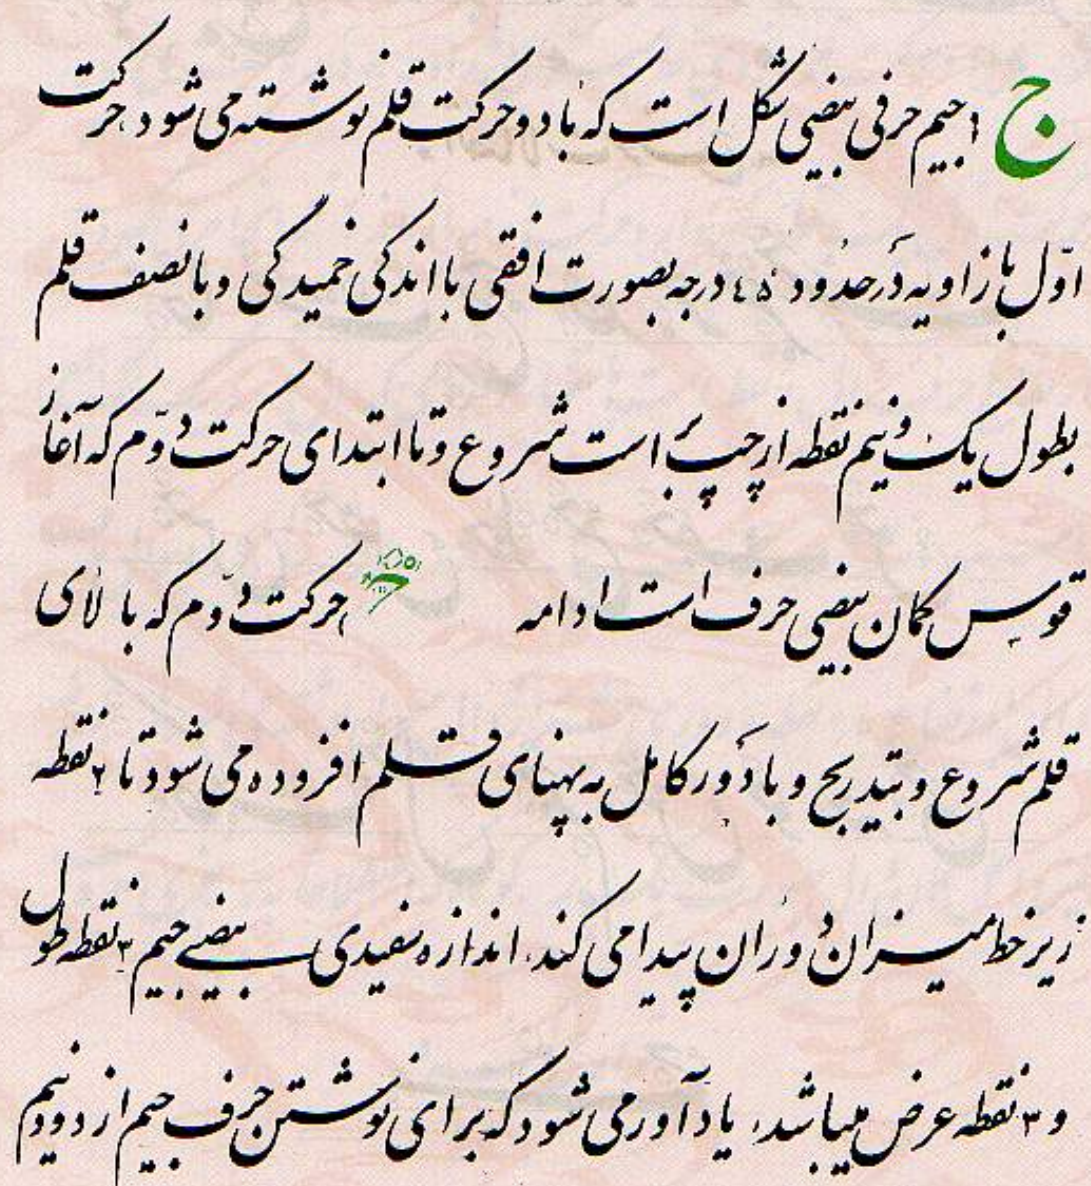 ج ، جیم حرفی بیضی شکل است که با دو حرکت قلم نوشته می شود، حرکت
اوّل با زاویه دَر حدُود ٤٥ درجه بصورت افقی با اندکی خمیدگی و با نصف قلم
بطول یک و نیم نقطه از چپ براست شروع و تا ابتدای حرکت دوّم که آغاز
قوس کمان بیضی حرف است ادامه ، حرکت دوّم که با لای
قلم شروع و بتدریج و با دَور کامل به پهنای قلم افزوده می شود تا ٢ نقطه
زیر خط میزان دوران پیدا می کند، اندازه سفیدی بیضی جیم ٣ نقطه طول
و ٣ نقطه عرض میباشد، یادآور می شود که برای نوشتن حرف جیم از دو دنیم